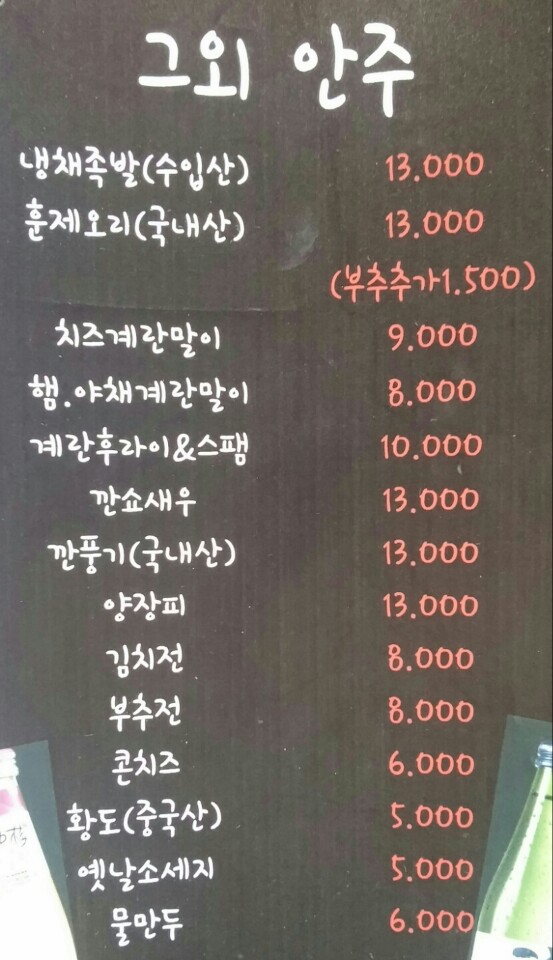 그외 안주
냉채족발(수입산) 13.000
훈제오리(국내산) 13.000
(부추추가1.500)
치즈계란말이 9.000
햄.야채계란말이 8.000
계란후라이&스팸 10.000
깐쇼새우 13.000
깐풍기(국내산) 13.000
양장피 13.000
김치전 8.000
부추전 8.000
콘치즈 6.000
황도(중국산) 5.000
옛날소세지 5.000
물만두 6.000